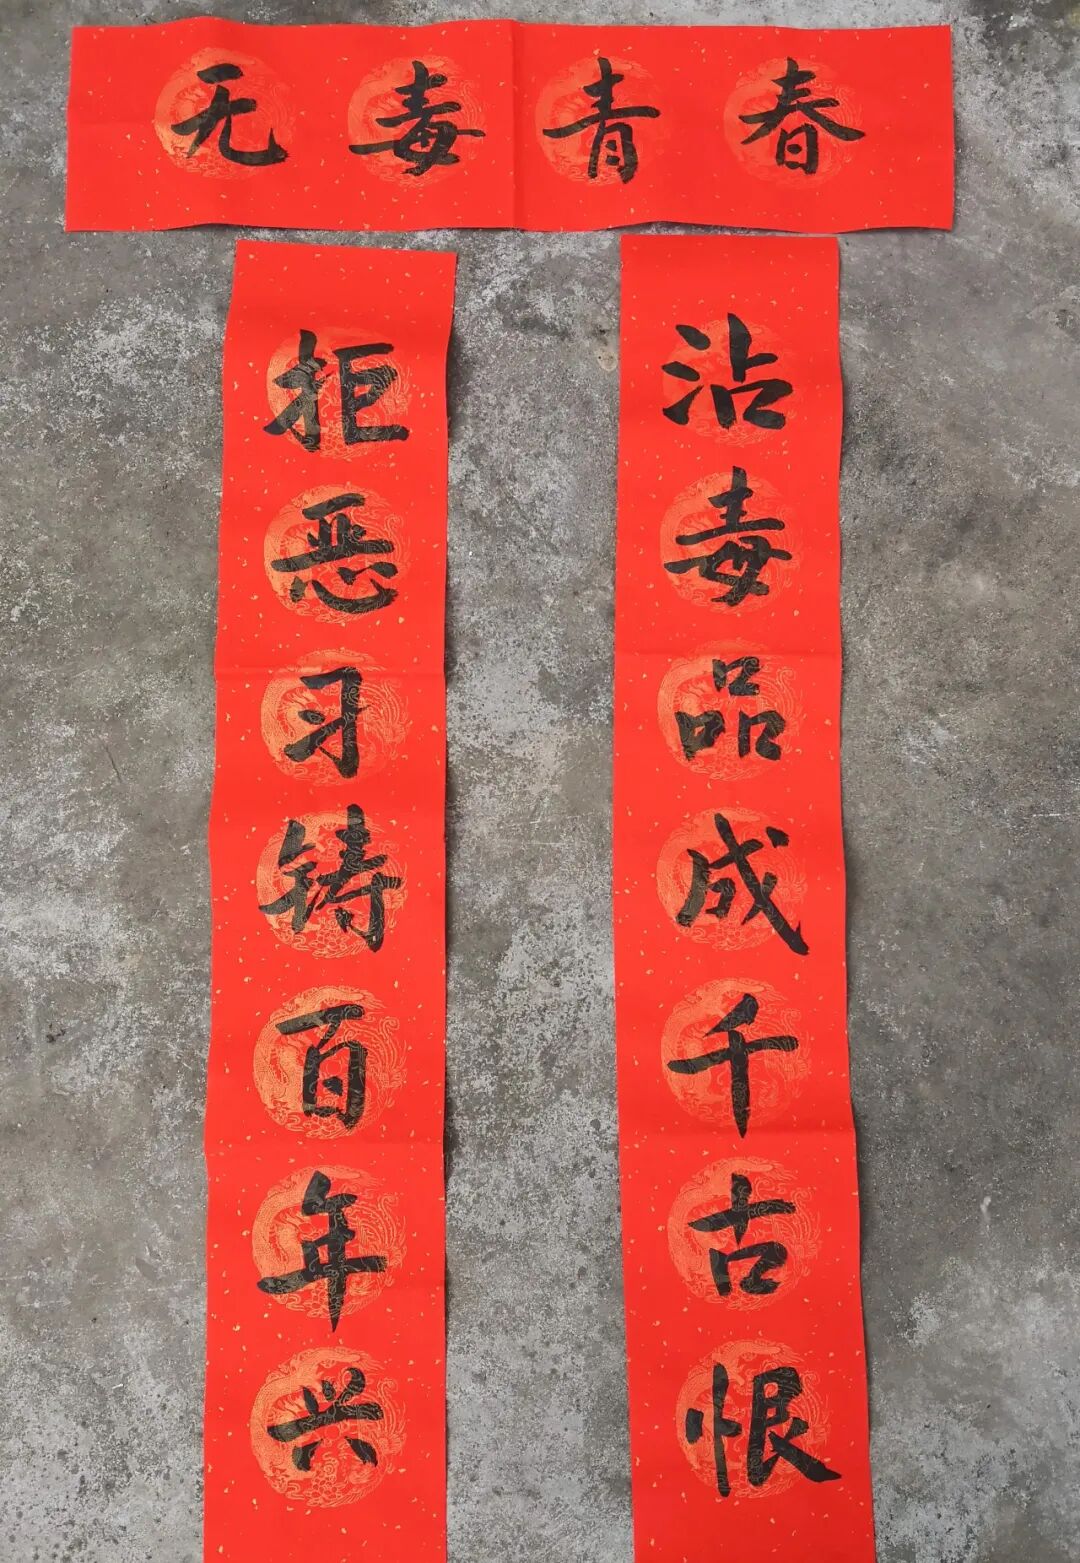 无毒青春
沾毒品成千古恨
拒恶习铸百年兴